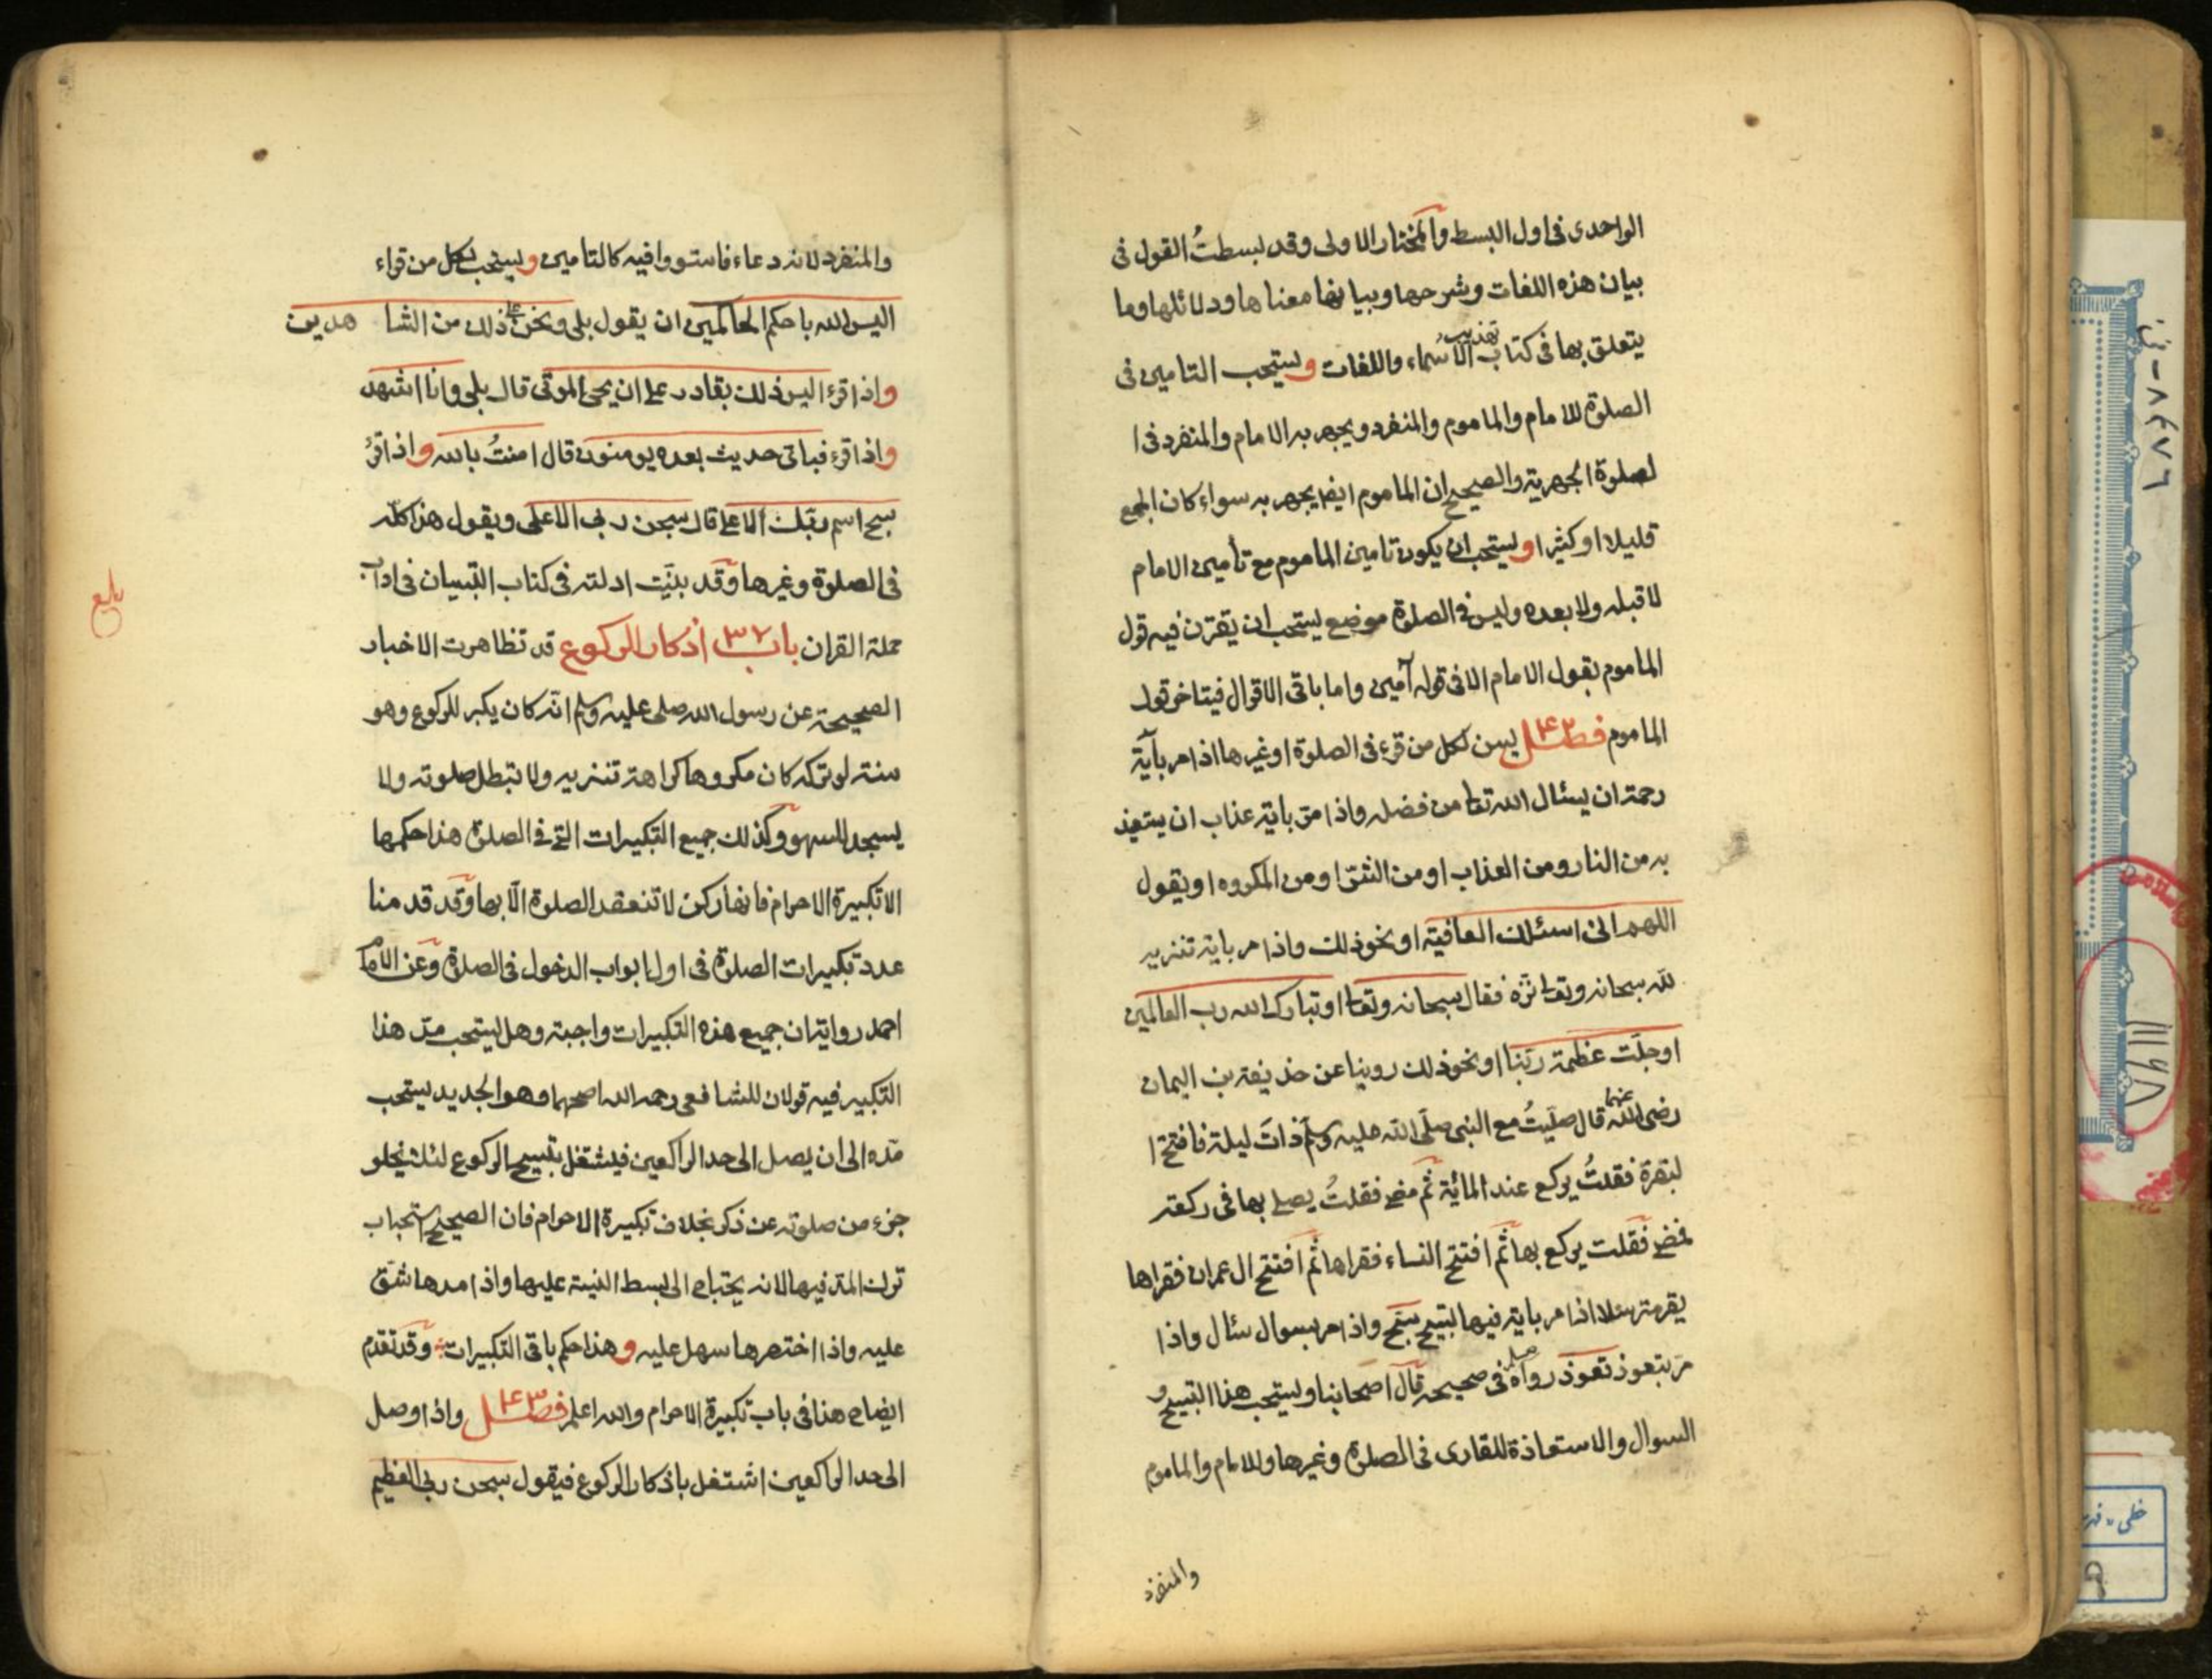 الواحدى فى اول البسط والمختار الاولى وقد بسطتُ القول فى
بيان هذه اللغات وشرحها وبيانها معناها ودلائلها وما
يتعلق بها فى كتاب تهذيب الأسماء واللغات ويستحب التامين فى
الصلوة للامام والماموم والمنفرد ويجهر به الامام والمنفرد فى ا
لصلوة الجهرية والصحيح ان الماموم ايضا يجهر به سواء كان الجمع
قليلا او كثيرا ويستحب ان يكون تامين الماموم مع تأمين الامام
لا قبله ولا بعده وليس فى الصلوة موضع يستحب ان يقترن فيه قول
الماموم بقول الامام الا فى قوله آمين واما باقى الاقوال فيتاخر قول
الماموم فصل ٤٢ يسن لكل من قرء فى الصلوة او غيرها اذا مر بآية
رحمة ان يسئال الله تعا من فضله واذا مر باية عذاب ان يستعيذ
به من النار ومن العذاب او من الشر او من المكروه او يقول
اللهم انى اسئلك العافية او نحو ذلك واذا مر باية تنزيه
لله سبحانه وتعا نزه فقال سبحانه وتعا او تبارك الله رب العالمين
او جلّت عظمة ربنا او نحو ذلك روينا عن حذيفة بن اليمان
رضى الله عنهما قال صليتُ مع النبى صلى الله عليه وسلم ذات ليلة فافتتح ا
لبقرة فقلتُ يركع عند المائية ثم مضى فقلتُ يصلى بها فى ركعة
فمضى فقلت يركع بها ثم افتتح النساء فقراها ثم افتتح ال عمران فقراها
يقرء مترسلا اذا مر باية فيها تسبيح سبّح واذا مر بسوال سئال واذا
مر بتعوذ تعوذ رواه مسلم فى صحيحه قال اصحابنا ويستحب هذا التسبيح و
السوال والاستعاذة للقارى فى الصلوة وغيرها وللامام والماموم
والمنفرد
والمنفرد لانه دعاء فاستووا فيه كالتامين ويستحب لكل من قراء
اليس الله باحكم الحاكمين ان يقول بلى ونحن على ذلك من الشاهدين
واذا قرء اليس ذلك بقادر على ان يحى الموتى قال بلى وانا اشهد
واذا قرء فباى حديث بعده يومنون قال امنتُ بالله واذا قرئ
سبح اسم ربك الاعلى قال سبحن ربى الاعلى ويقول هذا كله
فى الصلوة وغيرها وقد بينت ادلته فى كتاب التبيان فى اداب
حملة القران باب ٣٧ اذكار الركوع قد تظاهرت الاخبار
الصحيحة عن رسول الله صلى عليه وسلم انه كان يكبر للركوع وهو
سنة لو تركه كان مكروها كراهة تنزيه ولا تبطل صلوته ولا
يسجد للسهو وكذلك جميع التكبيرات التى فى الصلوة هذا حكمها
الا تكبيرة الاحرام فانها ركن لا تنعقد الصلوة الّا بها وقد قدمنا
عدد تكبيرات الصلوة فى اول ابواب الدخول فى الصلوة وعن الامام
احمد رواية ان جميع هذه التكبيرات واجبة وهل يستحب مدّ هذا
التكبير فيه قولان للشافعى رحمه الله اصحهما وهو الجديد يستحب
مدّه الى ان يصل الى حد الراكعين فيشتغل بتسبيح الركوع لئلا يخلو
جزء من صلوته عن ذكر بخلاف تكبيرة الاحرام فان الصحيح استحباب
ترك المد فيها لانه يحتاج الى بسط النية عليها واذا مدها شق
عليه واذا اختصرها سهل عليه وهذا حكم باقى التكبيرات وقد تقدم
ايضاح هذا فى باب تكبيرة الاحرام والله اعلم فصل ٤٣ واذا وصل
الى حد الراكعين اشتغل باذكار الركوع فيقول سبحن ربى العظيم
بلغ